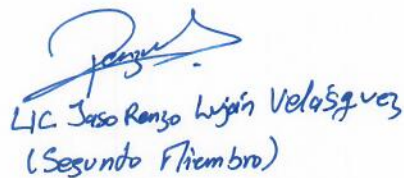 Renzo
LIC Jaso Renzo Luján Velásquez
(Segundo Miembro)